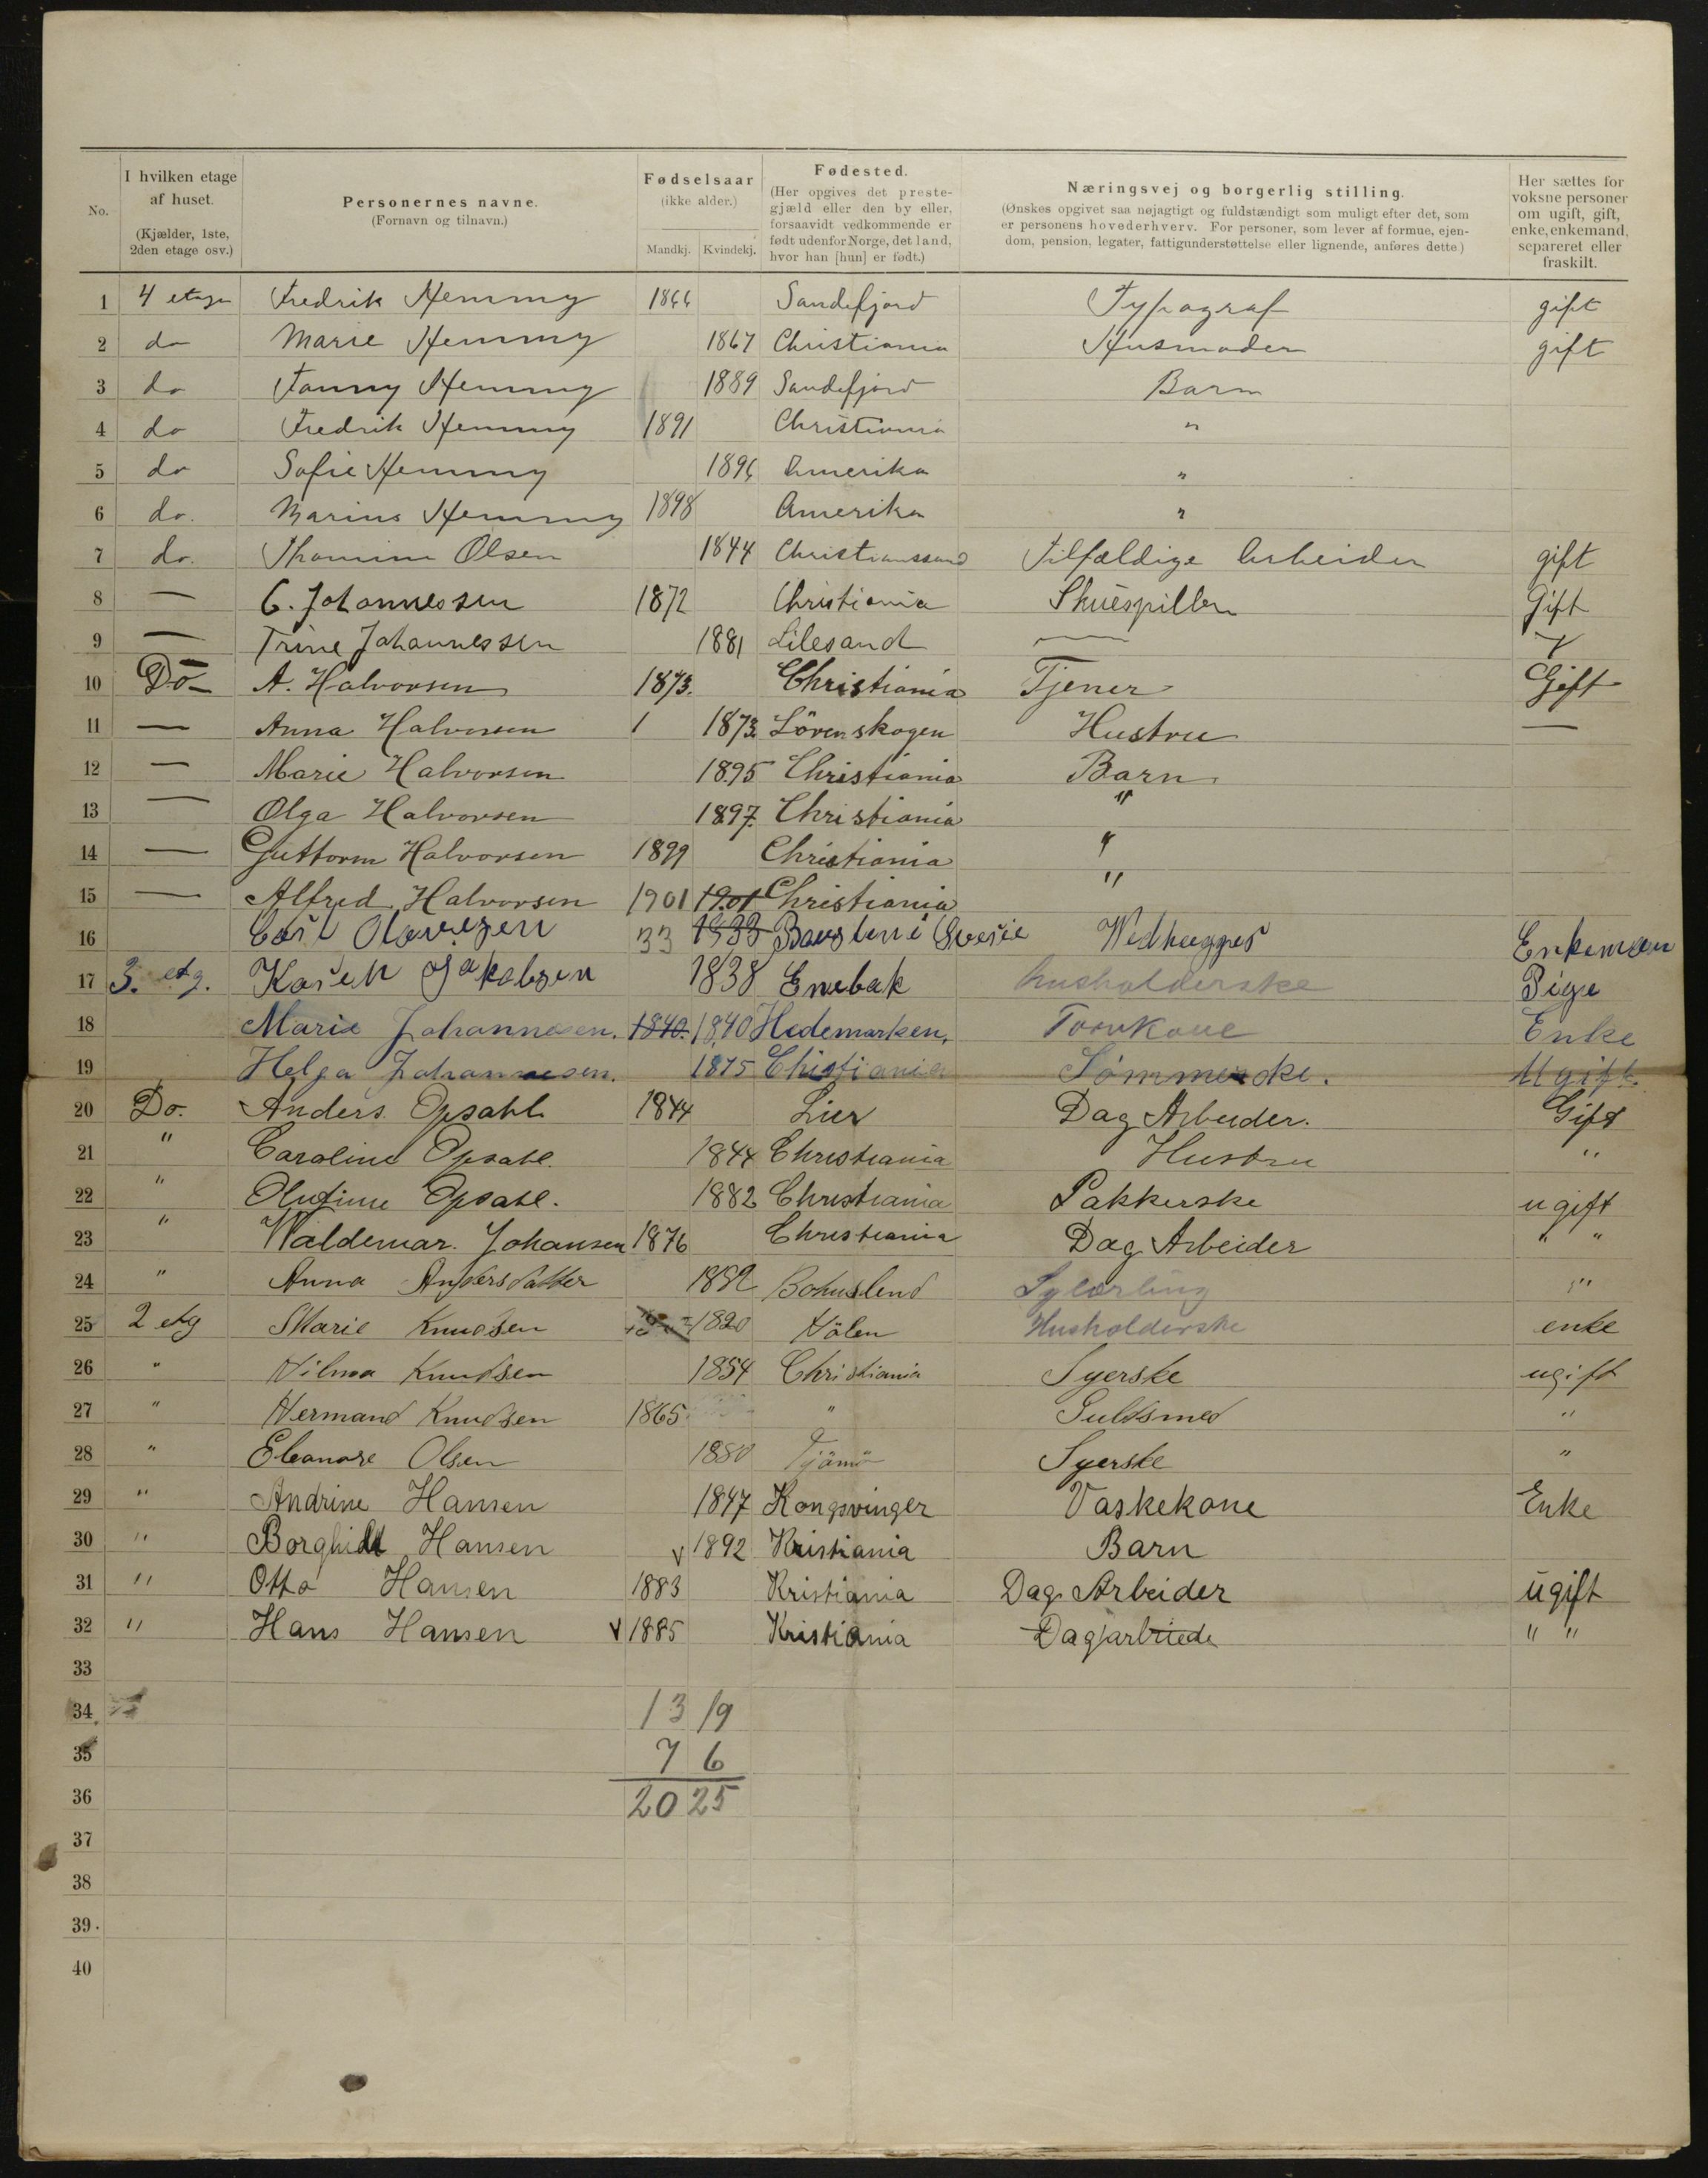 No.
I hvilken etage af huset. (Kjælder, 1ste, 2den etage osv.)
Personernes navne. (Fornavn og tilnavn.)
Fødselsaar (ikke alder.) Mandkj. Kvindekj.
Fødested. (Her opgives det prestegjæld eller den by eller, forsaavidt vedkommende er født udenfor Norge, det land, hvor han [hun] er født.)
Næringsvej og borgerlig stilling. (Ønskes opgivet saa nøjagtigt og fuldstændigt som muligt efter det, som er personens hovederhverv. For personer, som lever af formue, ejendom, pension, legater, fattigunderstøttelse eller lignende, anføres dette)
Her sættes for voksne personer om ugift, gift, enke, enkemand, separeret eller fraskilt.
1 4 etage Fredrik Hemmy 1866 Sandefjord Typograf gift
2 do Marie Hemmy 1867 Christiania Husmoder gift
3 do Fanny Hemmy 1889 Sandefjord Barn
4 do Fredrik Hemmy 1891 Christiania "
5 do Sofie Hemmy 1896 Amerika "
6 do. Marius Hemmy 1898 Amerika "
7 do. Thomine Olsen 1844 Christianssand Tilfældige Arbeider gift
8 — C. Johannessen 1872 Christiania Skuespiller Gift
9 — Trine Johannessen 1881 Lilesand —
10 Do A. Halvorsen 1873. Christiania Tjener Gift
11 — Anna Halvorsen 1 1873. Lörenskogen Hustru —
12 — Marie Halvorsen 1895 Christiania Barn
13 — Olga Halvorsen 1897. Christiania "
14 — Guttorm Halvorsen 1899 Christiania "
15 — Alfred Halvorsen 1901 1901 Christiania "
16 Carl 33 1833 Vedhugger Enkeman
17 3. etg. Karen Jakobsen 1838 Enebak husholderske Pige
18 Marie Johannesen. 1840. 1840 Hedemarken. Torvkone Enke
19 Helga Johannesen. 1875 Christiania Sømmerske. Ugift.
20 Do. Anders Opsahl 1844 Lier Dag Arbeider. Gift
21 " Caroline Opsahl. 1844 Christiania Hustru "
22 " Olufine Opsahl. 1882 Christiania Pakkerske ugift
23 " Waldemar. Johansen 1876 Christiania Dag Arbeider " "
24 " Anna Andersdatter 1882 Bohuslend Sylærling "
25 2 etg Marie Knudsen 1820 Hölen Husholderske enke
26 " Hilma Knudsen 1854 Christiania Syerske ugift
27 " Hermand Knudsen 1865 " Guldsmed "
28 " Eleonore Olsen 1880 Tjömö Syerske "
29 " Andrine Hansen 1847 Kongsvinger Vaskekone Enke
30 " Borghild Hansen v 1892 Kristiania Barn
31 " Otto Hansen 1883 Kristiania Dag Arbeider ugift
32 " Hans Hansen v 1885 Kristiania " "
33
34 13 19
35 7 6
36 20 25
37
38
39.
40